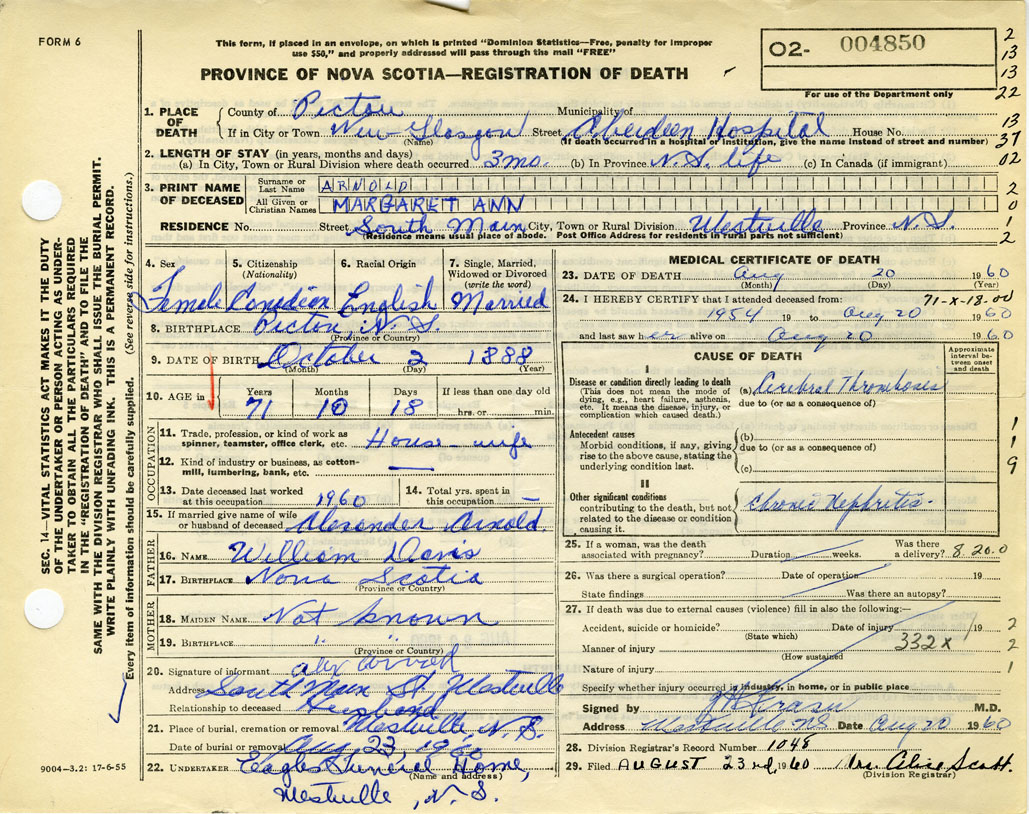 FORM 6
This form, if placed in an envelope, on which is printed "Dominion Statistics—Free, penalty for improper
use $50," and properly addressed will pass through the mail "FREE"
PROVINCE OF NOVA SCOTIA—REGISTRATION OF DEATH
O2- 004850
For use of the Department only
2
13
13
22
13
37
02
2
0
1
2
1. PLACE OF DEATH County of Pictou Municipality of
If in City or Town New-Glasgow Street Aberdeen Hospital House No.
(Name) (If death occurred in a hospital or institution, give the name instead of street and number)
2. LENGTH OF STAY (in years, months and days)
(a) In City, Town or Rural Division where death occurred 3 mo. (b) In Province N.S. life (c) In Canada (if immigrant)
3. PRINT NAME OF DECEASED Surname or Last Name ARNOLD
All Given or Christian Names MARGARET ANN
RESIDENCE No. Street South Main City, Town or Rural Division Westville Province N.S.
(Residence means usual place of abode. Post Office Address for residents in rural parts not sufficient)
4. Sex 5. Citizenship (Nationality) 6. Racial Origin 7. Single, Married, Widowed or Divorced (write the word)
Female Canadian English Married
8. BIRTHPLACE Pictou, N.S.
(Province or Country)
9. DATE OF BIRTH October 2 1888
(Month) (Day) (Year)
10. AGE in Years Months Days If less than one day old
71 10 18 hrs. or min.
OCCUPATION
11. Trade, profession, or kind of work as spinner, teamster, office clerk, etc. House-wife
12. Kind of industry or business, as cotton-mill, lumbering, bank, etc. —
13. Date deceased last worked at this occupation 1960 14. Total yrs. spent in this occupation —
15. If married give name of wife or husband of deceased Alexander Arnold.
FATHER
16. NAME William Davis
17. BIRTHPLACE Nova Scotia
(Province or Country)
MOTHER
18. MAIDEN NAME Not known
19. BIRTHPLACE " "
(Province or Country)
20. Signature of informant Alex Arnold
Address South Main St Westville
Relationship to deceased Husband
21. Place of burial, cremation or removal Westville, N.S.
Date of burial or removal Aug 23, 1960
22. UNDERTAKER Eagles Funeral Home,
(Name and address)
Westville, N.S.
MEDICAL CERTIFICATE OF DEATH
23. DATE OF DEATH Aug 20 1960
(Month) (Day) (Year)
24. I HEREBY CERTIFY that I attended deceased from: 71-X-18-00
1954 19 to Aug 20 1960
and last saw her alive on Aug 20 1960
CAUSE OF DEATH
Approximate interval between onset and death
I
Disease or condition directly leading to death
(This does not mean the mode of dying, e.g., heart failure, asthenia, etc. It means the disease, injury, or complication which caused death.)
(a) Cerebral Thrombosis
due to (or as a consequence of)
Antecedent causes
Morbid conditions, if any, giving rise to the above cause, stating the underlying condition last.
(b)
due to (or as a consequence of)
(c)
II
Other significant conditions
contributing to the death, but not related to the disease or condition causing it.
Chronic Nephritis-
1
1
9
25. If a woman, was the death associated with pregnancy? Duration weeks. Was there a delivery? 8.20.0
26. Was there a surgical operation? Date of operation 19
State findings Was there an autopsy?
27. If death was due to external causes (violence) fill in also the following:—
Accident, suicide or homicide? Date of injury 19 2
(State which)
Manner of injury 332X 2
(How sustained)
Nature of injury 1
Specify whether injury occurred in industry, in home, or in public place
Signed by M.D.
Address Westville NS Date Aug 20 1960
28. Division Registrar's Record Number 1048
29. Filed AUGUST 23rd, 1960 Mrs. Alice Scott.
(Division Registrar)
9004—3.2: 17-6-55
SEC. 14—VITAL STATISTICS ACT MAKES IT THE DUTY
OF THE UNDERTAKER OR PERSON ACTING AS UNDER-
TAKER TO OBTAIN ALL THE PARTICULARS REQUIRED
IN THE "REGISTRATION OF DEATH" AND TO FILE THE
SAME WITH THE DIVISION REGISTRAR WHO SHALL ISSUE THE BURIAL PERMIT.
WRITE PLAINLY WITH UNFADING INK. THIS IS A PERMANENT RECORD.
Every item of information should be carefully supplied. (See reverse side for instructions.)